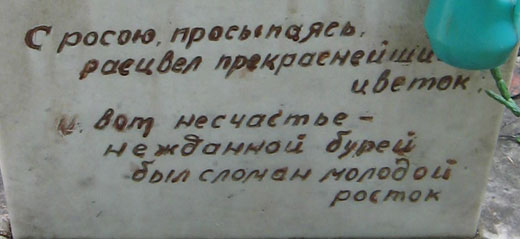 С росою, просыпаясь,
расцвел прекраснейший
цветок
и вот несчастье –
нежданной бурей
был сломан молодой
росток